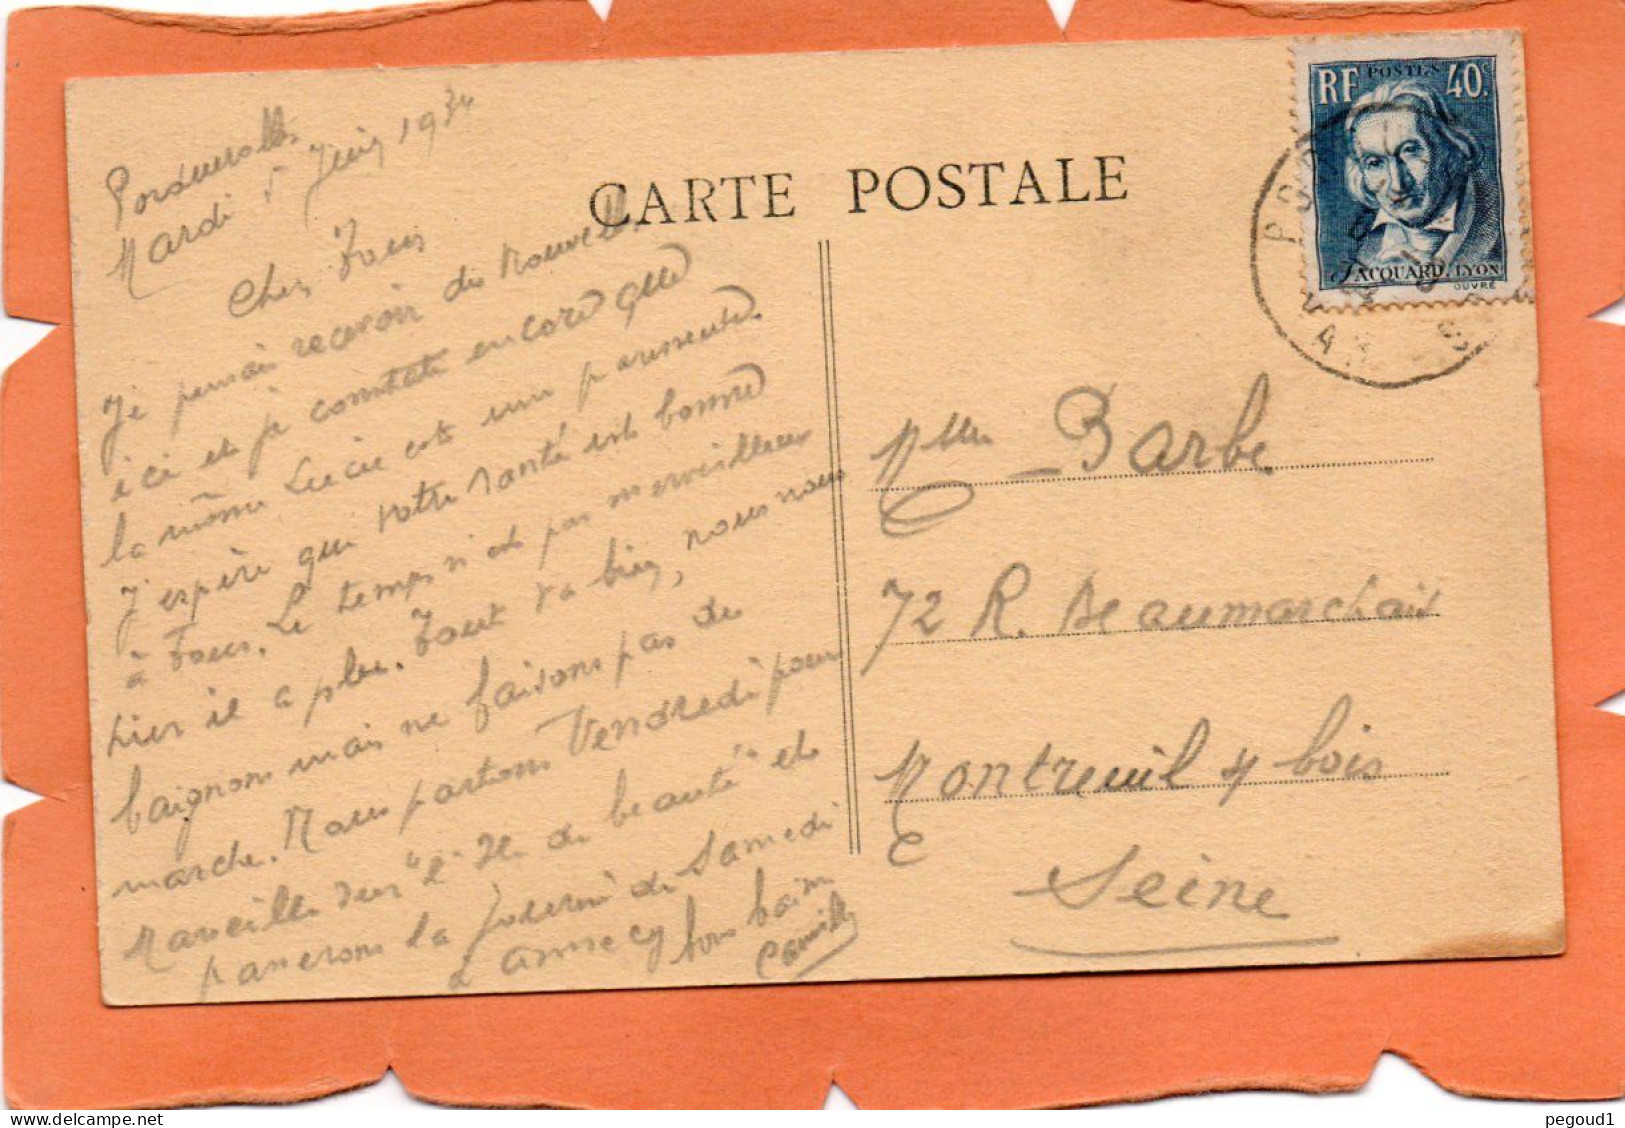 Mardi 5 Juin 1934
Chers Tous
Je pensais recevoir des nouvelles
ici et je constate encore que
la môme Lucie est une paresseuse.
J'espère que votre santé est bonne
à tous. Le temps n'est pas merveilleux
hier il a plu. Tout va bien, nous nous
baignons mais ne faisons pas de
marche. Nous partons Vendredi pour
Marseille sur "l'Ile de beauté" et
passerons la journée de Samedi
à Annecy bons baisers
Camille
CARTE POSTALE
RF POSTES 40c.
JACQUARD. LYON
OUVRÉ
Mme Barbe
72 R. Beaumarchais
Montreuil s/ bois
Seine
pegoud1